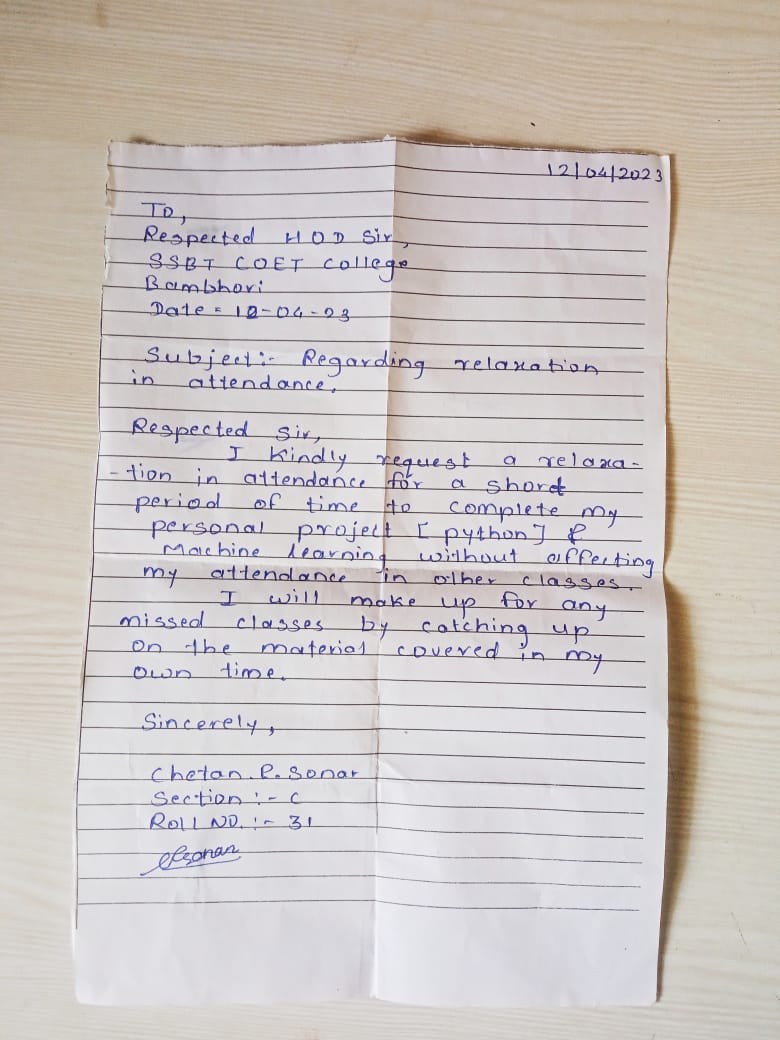 12/04/2023
To,
Respected HOD Sir,
SSBT COET college
Bambhori
Date = 12-04-23
Subject:- Regarding relaxation
in attendance.
Respected Sir,
I kindly request a relaxa-
-tion in attendance for a short
period of time to complete my
personal project [python] &
Machine learning without affecting
my attendance in other classes.
I will make up for any
missed classes by catching up
on the material covered in my
own time.
Sincerely,
Chetan.P.Sonar
Section :- C
Roll NO. :- 31
CPSonar